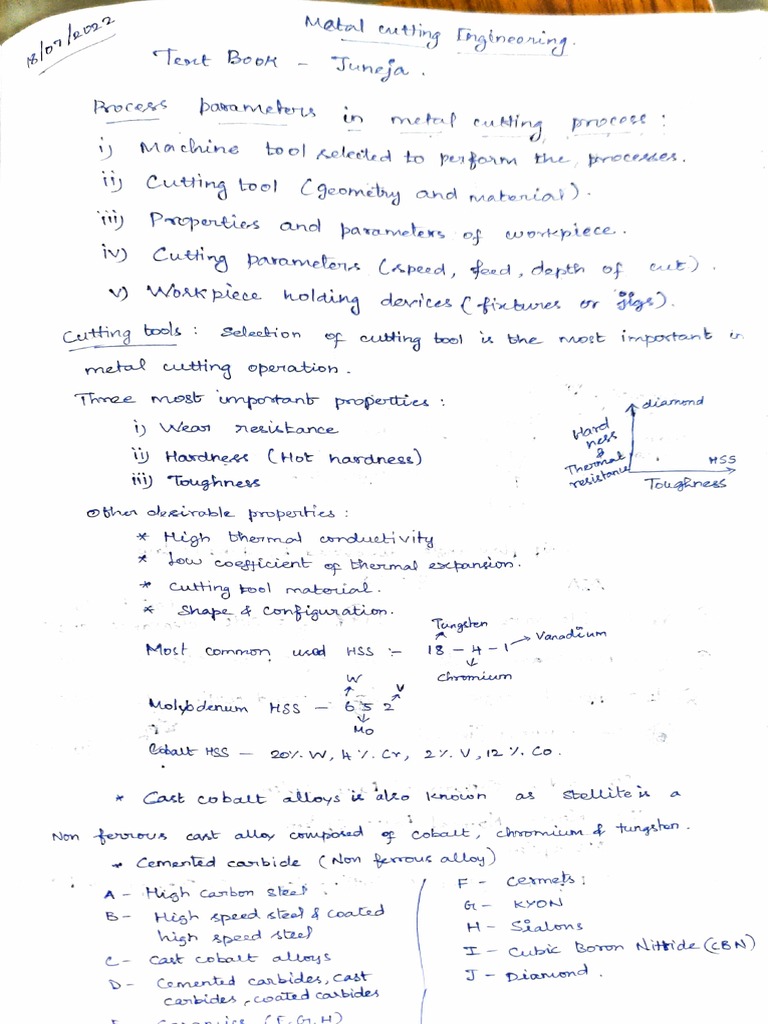 18/07/2022
Metal cutting Engineering.
Text Book - Juneja.
Process parameters in metal cutting process :
i) Machine tool selected to perform the processes.
ii) Cutting tool (geometry and material).
iii) Properties and parameters of workpiece.
iv) Cutting parameters (speed, feed, depth of cut).
v) Workpiece holding devices (fixtures or jigs).
Cutting tools : Selection of cutting tool is the most important in
metal cutting operation.
Three most important properties :
i) Wear resistance
ii) Hardness (Hot hardness)
iii) Toughness
diamond
Hard
ness
&
Thermal
resistance
HSS
Toughness
Other desirable properties :
* High thermal conductivity
* Low coefficient of thermal expansion.
* Cutting tool material.
* Shape & configuration.
Tungsten
Most common used HSS :- 18 - 4 - 1 → Vanadium
Chromium
W
V
Molybdenum HSS - 6 5 2
Mo
Cobalt HSS - 20% W, 4% Cr, 2% V, 12% Co.
* Cast cobalt alloys is also known as stellite is a
Non ferrous cast alloy composed of cobalt, chromium & tungsten.
* Cemented carbide (Non ferrous alloy)
A - High carbon steel
B - High speed steel & coated
high speed steel
C - Cast cobalt alloys
D - Cemented carbides, cast
carbides, coated carbides
E - Ceramics (F, G, H)
F - Cermets
G - KYON
H - Sialons
I - Cubic Boron Nitride (CBN)
J - Diamond.